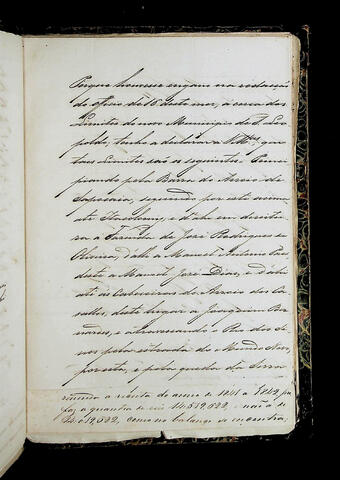 Porque houvesse engano na redacção
do officio de 18 deste mez, á cerca dos
Limites do novo Municipio de S. Leo-
poldo, tenho a declarar a VMces que
taes Limites são os seguintes: Prin-
cipiando pela Barra do Arroio de
Sapucaia, seguindo por este acima
até Itacolomy, e d'ahi em direitu-
ra a Fazenda de José Rodrigues de
d'ahi a Manoel Antonio
deste a Manoel José Dias, e d'ahi
até as Cabeceiras do Arroio dos Ca-
valhos, deste lugar a Joaquim Ber-
nardes, e atravessando o Rio dos Si-
nos pela estrada do Mundo Novo,
por esta, e pela quebra da Serra
a receita do anno de 1841 a 1842
a quantia de reis 14.519,522, e não
como no balanço se encontra,